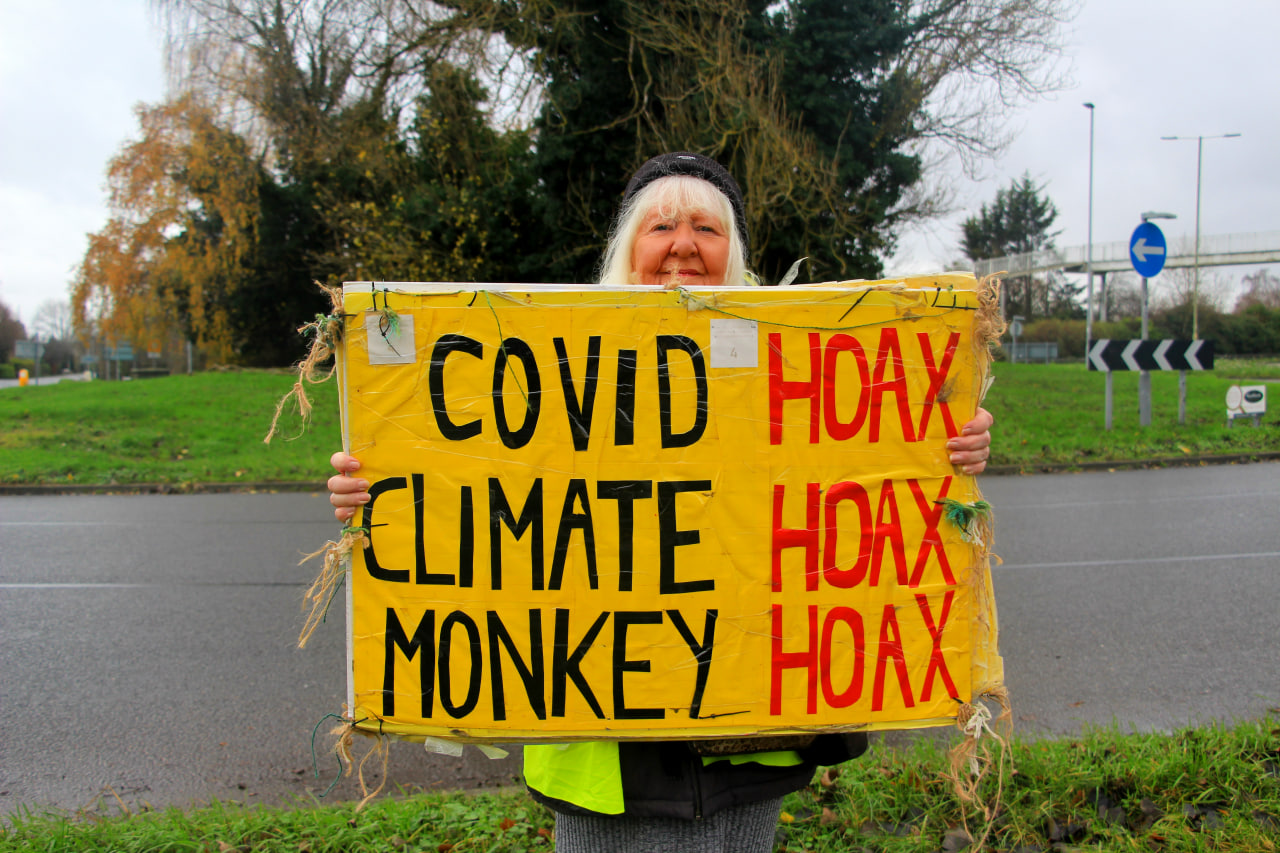 COVID HOAX
4
CLIMATE HOAX
MONKEY HOAX